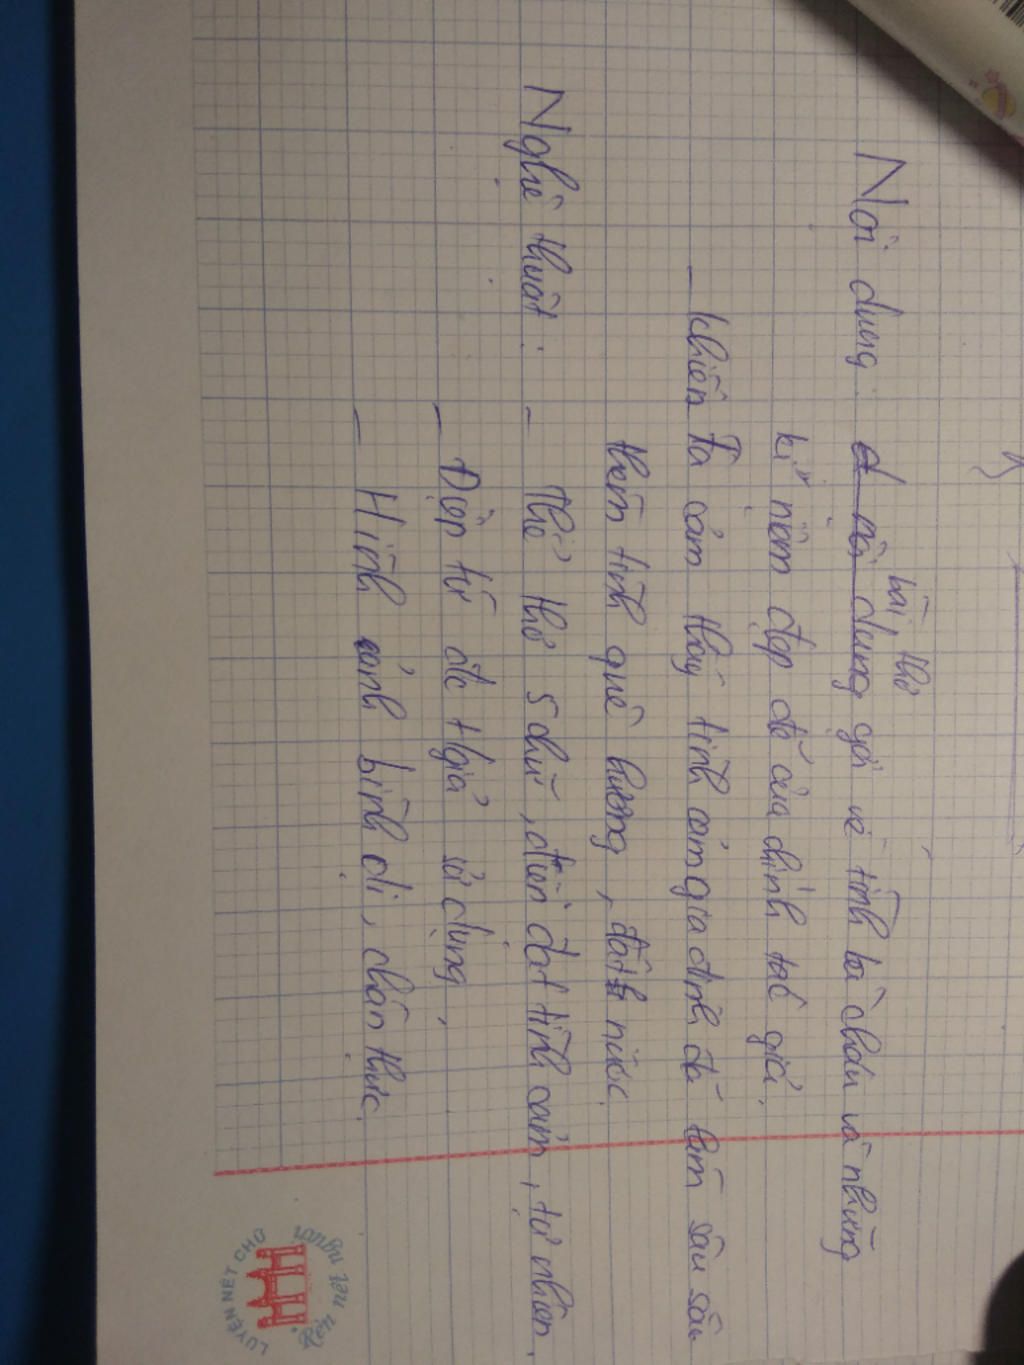 Nội dung: bài thơ gợi về tình bà cháu và những
kỉ niệm đẹp đẽ của chính tác giả.
- khiến ta cảm thấy tình cảm gia đình đã làm sâu sắc
thêm tình quê hương, đất nước.
Nghệ thuật: - thể thơ 5 chữ, diễn đạt tình cảm, tự nhiên.
- Điệp từ đc tgiả sử dụng,
- Hình ảnh bình dị, chân thực.
LUYỆN NÉT CHỮ
Rèn nết người